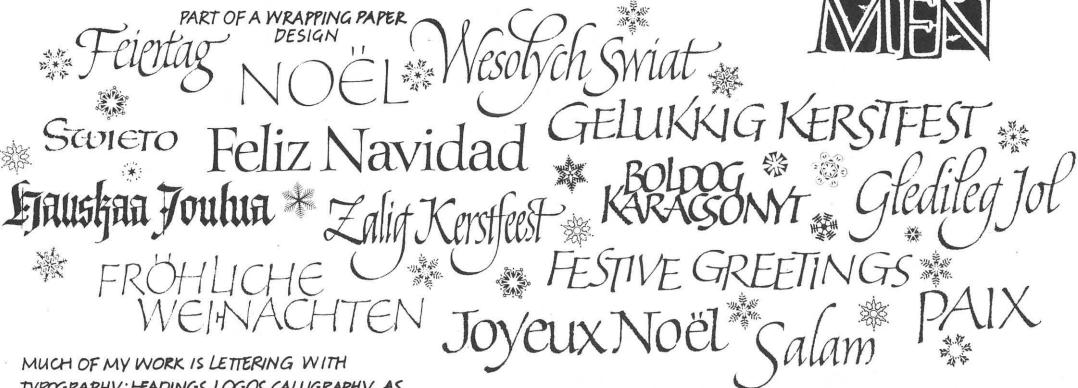 PART OF A WRAPPING PAPER
DESIGN
MEN
Feiertag
NOËL
Wesolych Swiat
Swieto
Feliz Navidad
GELUKKIG KERSTFEST
Hauskaa Joulua
Zalig Kerstfeest
BOLDOG
KARACSONYT
Gledileg Jol
FRÖHLICHE
WEIHNACHTEN
FESTIVE GREETINGS
Joyeux Noël
Salam
PAIX
MUCH OF MY WORK IS LETTERING WITH
TYPOGRAPHY: HEADINGS, LOGOS, CALLIGRAPHY AS